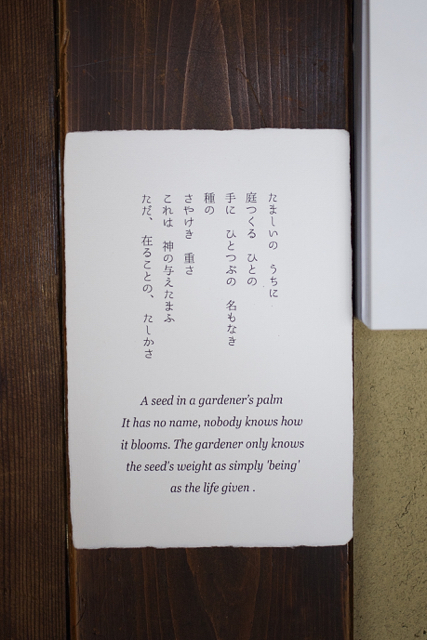 たましいの　うちに
庭つくる　ひとの
手に　ひとつぶの　名もなき
種の
さやけき　重さ
これは　神の与えたまふ
ただ、在ることの、たしかさ
A seed in a gardener's palm
It has no name, nobody knows how
it blooms. The gardener only knows
the seed's weight as simply 'being'
as the life given .